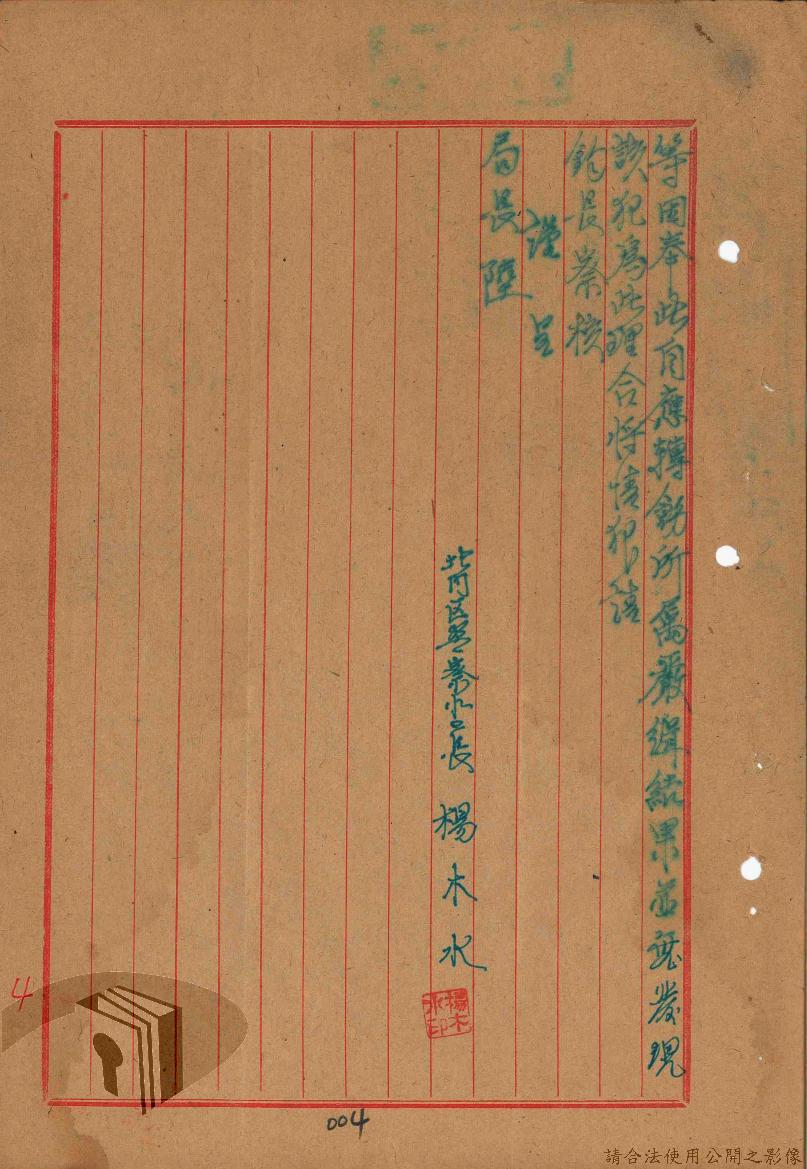 等因奉此自應轉飭所屬嚴緝結果並無發現
該犯為此理合將情報請
鈞長察核
謹呈
局長陸
北門區警察所長 楊木水
楊木水印
4
004
請合法使用公開之影像